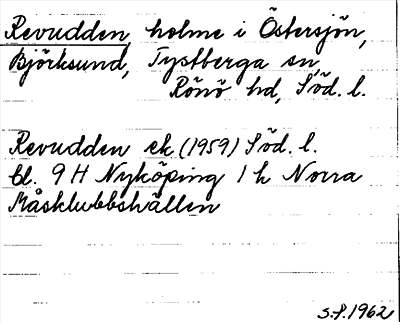 Revudden, holme i Östersjön,
Björksund, Tystberga sn,
Rönö hd, Söd. l.
Revudden ek. (1959) Söd. l.
bl. 9 H Nyköping 1 h Norra
Måsklubbshällen
S.P. 1962